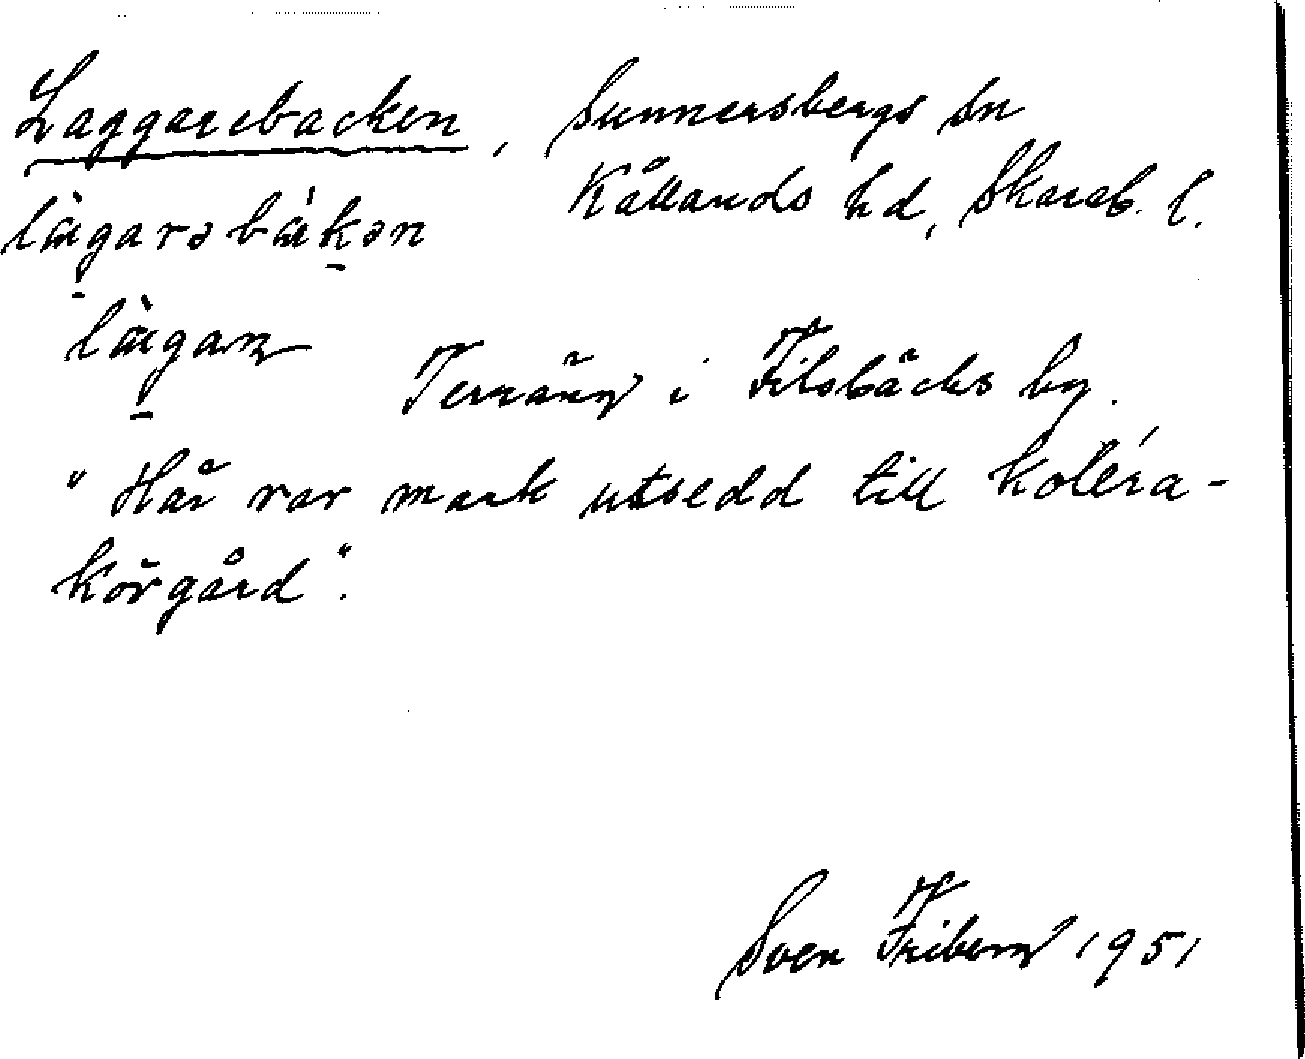 Laggarebacken, Sunnersbergs sn
Kållands hd, Skarab. l.
làgarəbàkən
làgar
Terräng i Filsbäcks by.
"Här var mark utsedd till koléra-
körgård".
Sven Friberg 1951